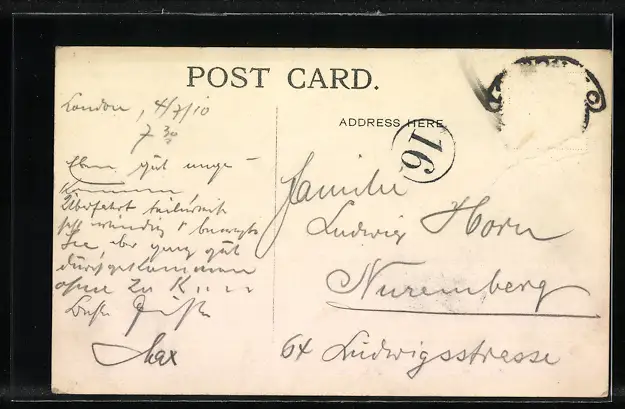 POST CARD.
London, 4/7/10
7 30
ADDRESS HERE
16
Eben gut ange-
kommen
Überfahrt teilweise
sehr windig & bewegte
See, aber ganz gut
durchgekommen
ohne zu K....
Beste Grüße
Max
Familie
Ludwig Horn
Nuremberg
64 Ludwigsstrasse